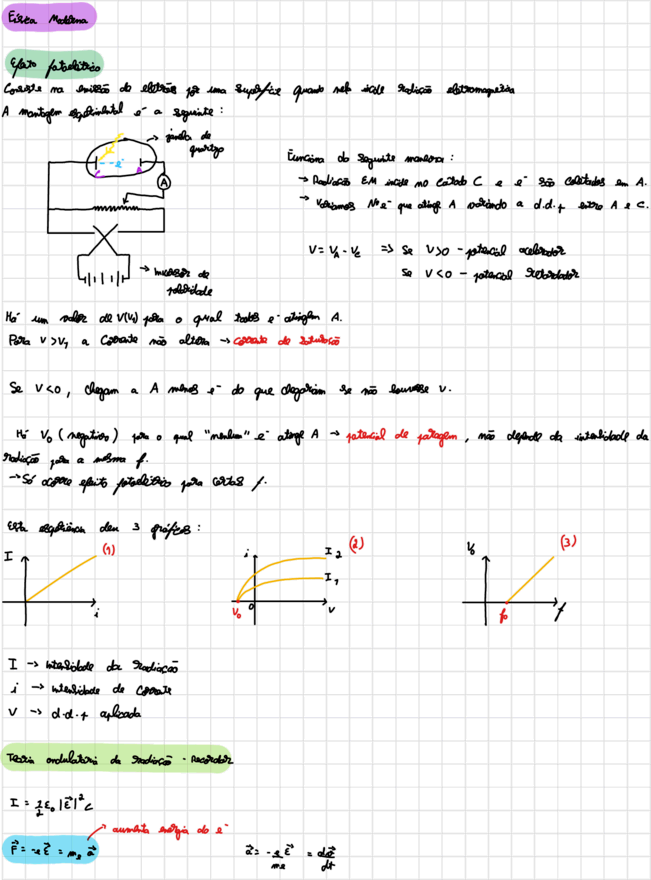 Física Moderna
Efeito fotoelétrico
Consiste na emissão de eletrões por uma superfície quando nela incide radiação eletromagnética
A montagem experimental é a seguinte:
→ janela de quartzo
e⁻
C
A
A
→ inversor de polaridade
Funciona da seguinte maneira:
→ Radiação EM incide no cátodo C e e⁻ são coletados em A.
→ Variamos Nº e⁻ que atinge A variando a d.d.p entre A e C.
V = V_A - V_C ⇒ Se V>0 - potencial acelerador
Se V<0 - potencial retardador
Há um valor de V(V₁) para o qual todos e⁻ atingem A.
Para V>V₁ a corrente não altera → corrente de saturação
Se V<0, chegam a A menos e⁻ do que chegariam se não houvesse V.
Há V₀ (negativo) para o qual "nenhum" e⁻ atinge A → potencial de paragem, não depende da intensidade da
radiação para a mesma f.
→ Só ocorre efeito fotoelétrico para certas f.
Esta experiência deu 3 gráficos:
I (1) i
i I₂ (2) I₁ V₀ 0 V
V₀ (3) f₀ f
I → intensidade da radiação
i → intensidade de corrente
V → d.d.p aplicada
Teoria ondulatória da radiação - Recordar
I = 1/2 ε₀ |E⃗|² c
→ aumenta energia do e⁻
F⃗ = -e E⃗ = mₑ a⃗
a⃗ = -e/mₑ E⃗ = dv⃗/dt